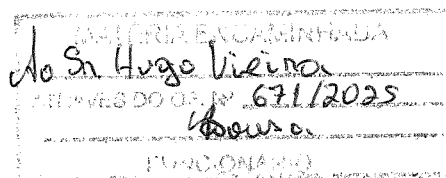 MATÉRIA ENCAMINHADA
Ao Sr Hugo Vieira
ATRAVÉS DO OF. Nº 671/2025
Sousa
FUNCIONÁRIO